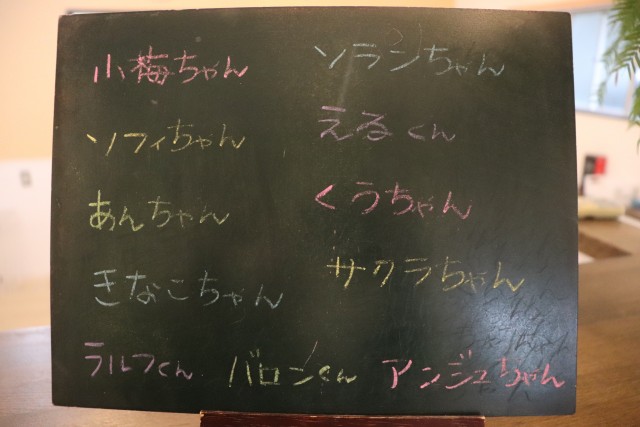 小梅ちゃん
ソフィちゃん
あんちゃん
きなこちゃん
ソランちゃん
えるくん
くうちゃん
サクラちゃん
ラルフくん バロンくん アンジュちゃん